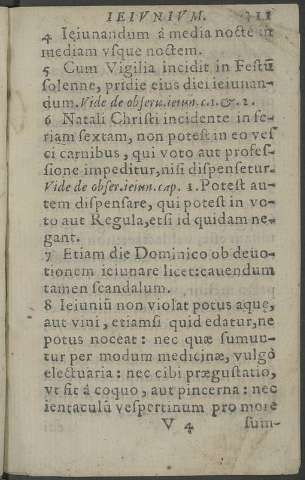 IEIVNIVM. 311
4 Ieiunandum á media nocte in
mediam vsque noctem.
5 Cum Vigilia incidit in Festũ
solenne, pridie eius diei ieiunan-
dum. Vide de obseru.ieiun.c.1.&. 2.
6 Natali Christi incidente in fe-
riam sextam, non potest in eo ves
ci carnibus, qui voto aut profes-
sione impeditur, nisi dispensetur.
Vide de obser.ieiun.cap. 1. Potest au-
tem dispensare, qui potest in vo-
to aut Regula, etsi id quidam ne-
gant.
7 Etiam die Dominico ob deuo-
tionem ieiunare licet: cauendum
tamen scandalum.
8 Ieiuniũ non violat potus aquę,
aut vini, etiamsi quid edatur, ne
potus noceat: nec quæ sumun-
tur per modum medicinæ, vulgò
electuaria: nec cibi prægustatio,
vt fit á coquo, aut pincerna: nec
ientaculũ vespertinum pro more
V 4 sum-